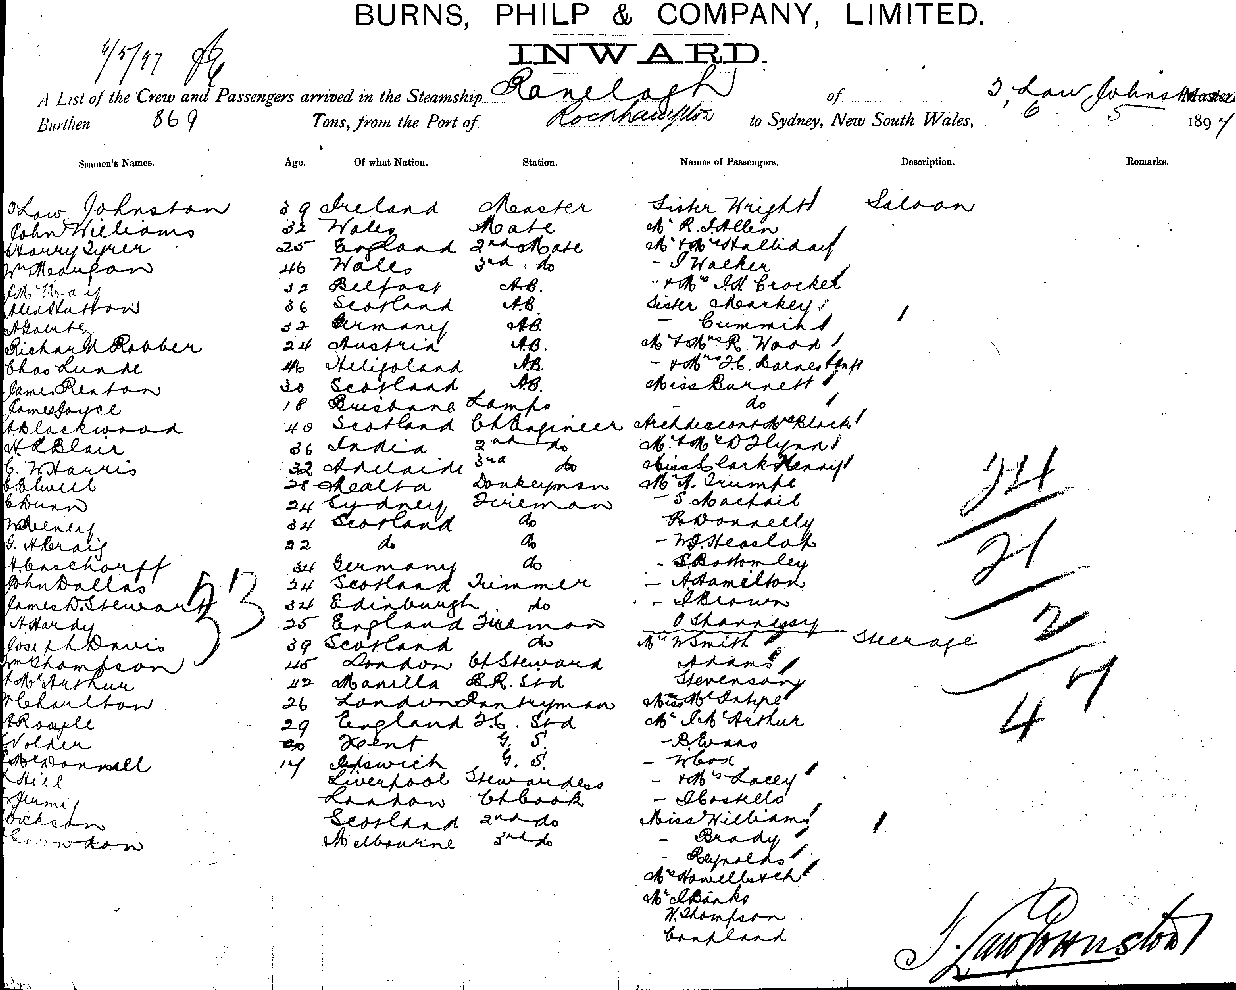 BURNS, PHILP & COMPANY, LIMITED.
INWARD.
6/5/97
A List of the Crew and Passengers arrived in the Steamship Ranelagh of J, Law Johnston Master
Burthen 869 Tons, from the Port of Rockhampton to Sydney, New South Wales, 6 5 1897
Seamen's Names. Age. Of what Nation. Station. Names of Passengers. Description. Remarks.
J Law Johnston 39 Ireland Master Sister Wright Saloon
John Williams 32 Wales Mate Mr R. J Allen
Harry Tyrer 25 England 2nd Mate Mr & Mrs Halliday
Wm Meaugan 46 Wales 3rd do - J Walker
32 Belfast A.B. - & Mrs J H Crocket
Alex Hutton 36 Scotland AB. Sister Mackey
32 Germany AB. - Cummins
Richard Robber 24 Austria AB. Mr & Mrs R. Wood
Chas Lunde 46 Heligoland AB. - & Mrs F. C. Barnes
James Renton 30 Scotland AB. Miss Burnett
James Joyce 18 Brisbane Lamps - do
A Blackwood 40 Scotland Ch Engineer
H R Blair 36 India 2nd do Mr & Mrs D Flynn
C. W Harris 32 Adelaide 3rd do Miss Clark Kennif
Elwell 28 Malta Donkeyman Mr A. Trumpe
E Dunn 24 Sydney Fireman - S. Machail
34 Scotland do P. Donnelly
G. A Craig 22 do do - W. J. Heaslop
34 Germany do - S Bottomley
John Dallas 24 Scotland Trimmer - A Hamilton
James D. Stewart 34 Edinburgh do - J Brown
A Hardy 25 England Fireman O Shannesy
Joseph Davis 39 Scotland do Mrs W Smith Steerage
Wm Thompson 45 London Ch Steward Adams
McArthur 42 Manilla B.R. Std Stevenson
Charlton 26 London Pantryman Miss McIntyre
29 England F.C. Std Mr J McArthur
Volder 20 Kent G. S. - B. Evans
McDonnell 17 Ipswich G. S. - W Cox
Hill Liverpool Stewardess - & Mrs Lacey
London Ch Cook - J Costello
Dickson Scotland 2nd do Miss Williams
Melbourne 3rd do - Brady
- Reynolds
Mrs Howells & ch
Mr J Banks
W. Thompson
Coupland
53
24
21
2
4 7
J. Law Johnston